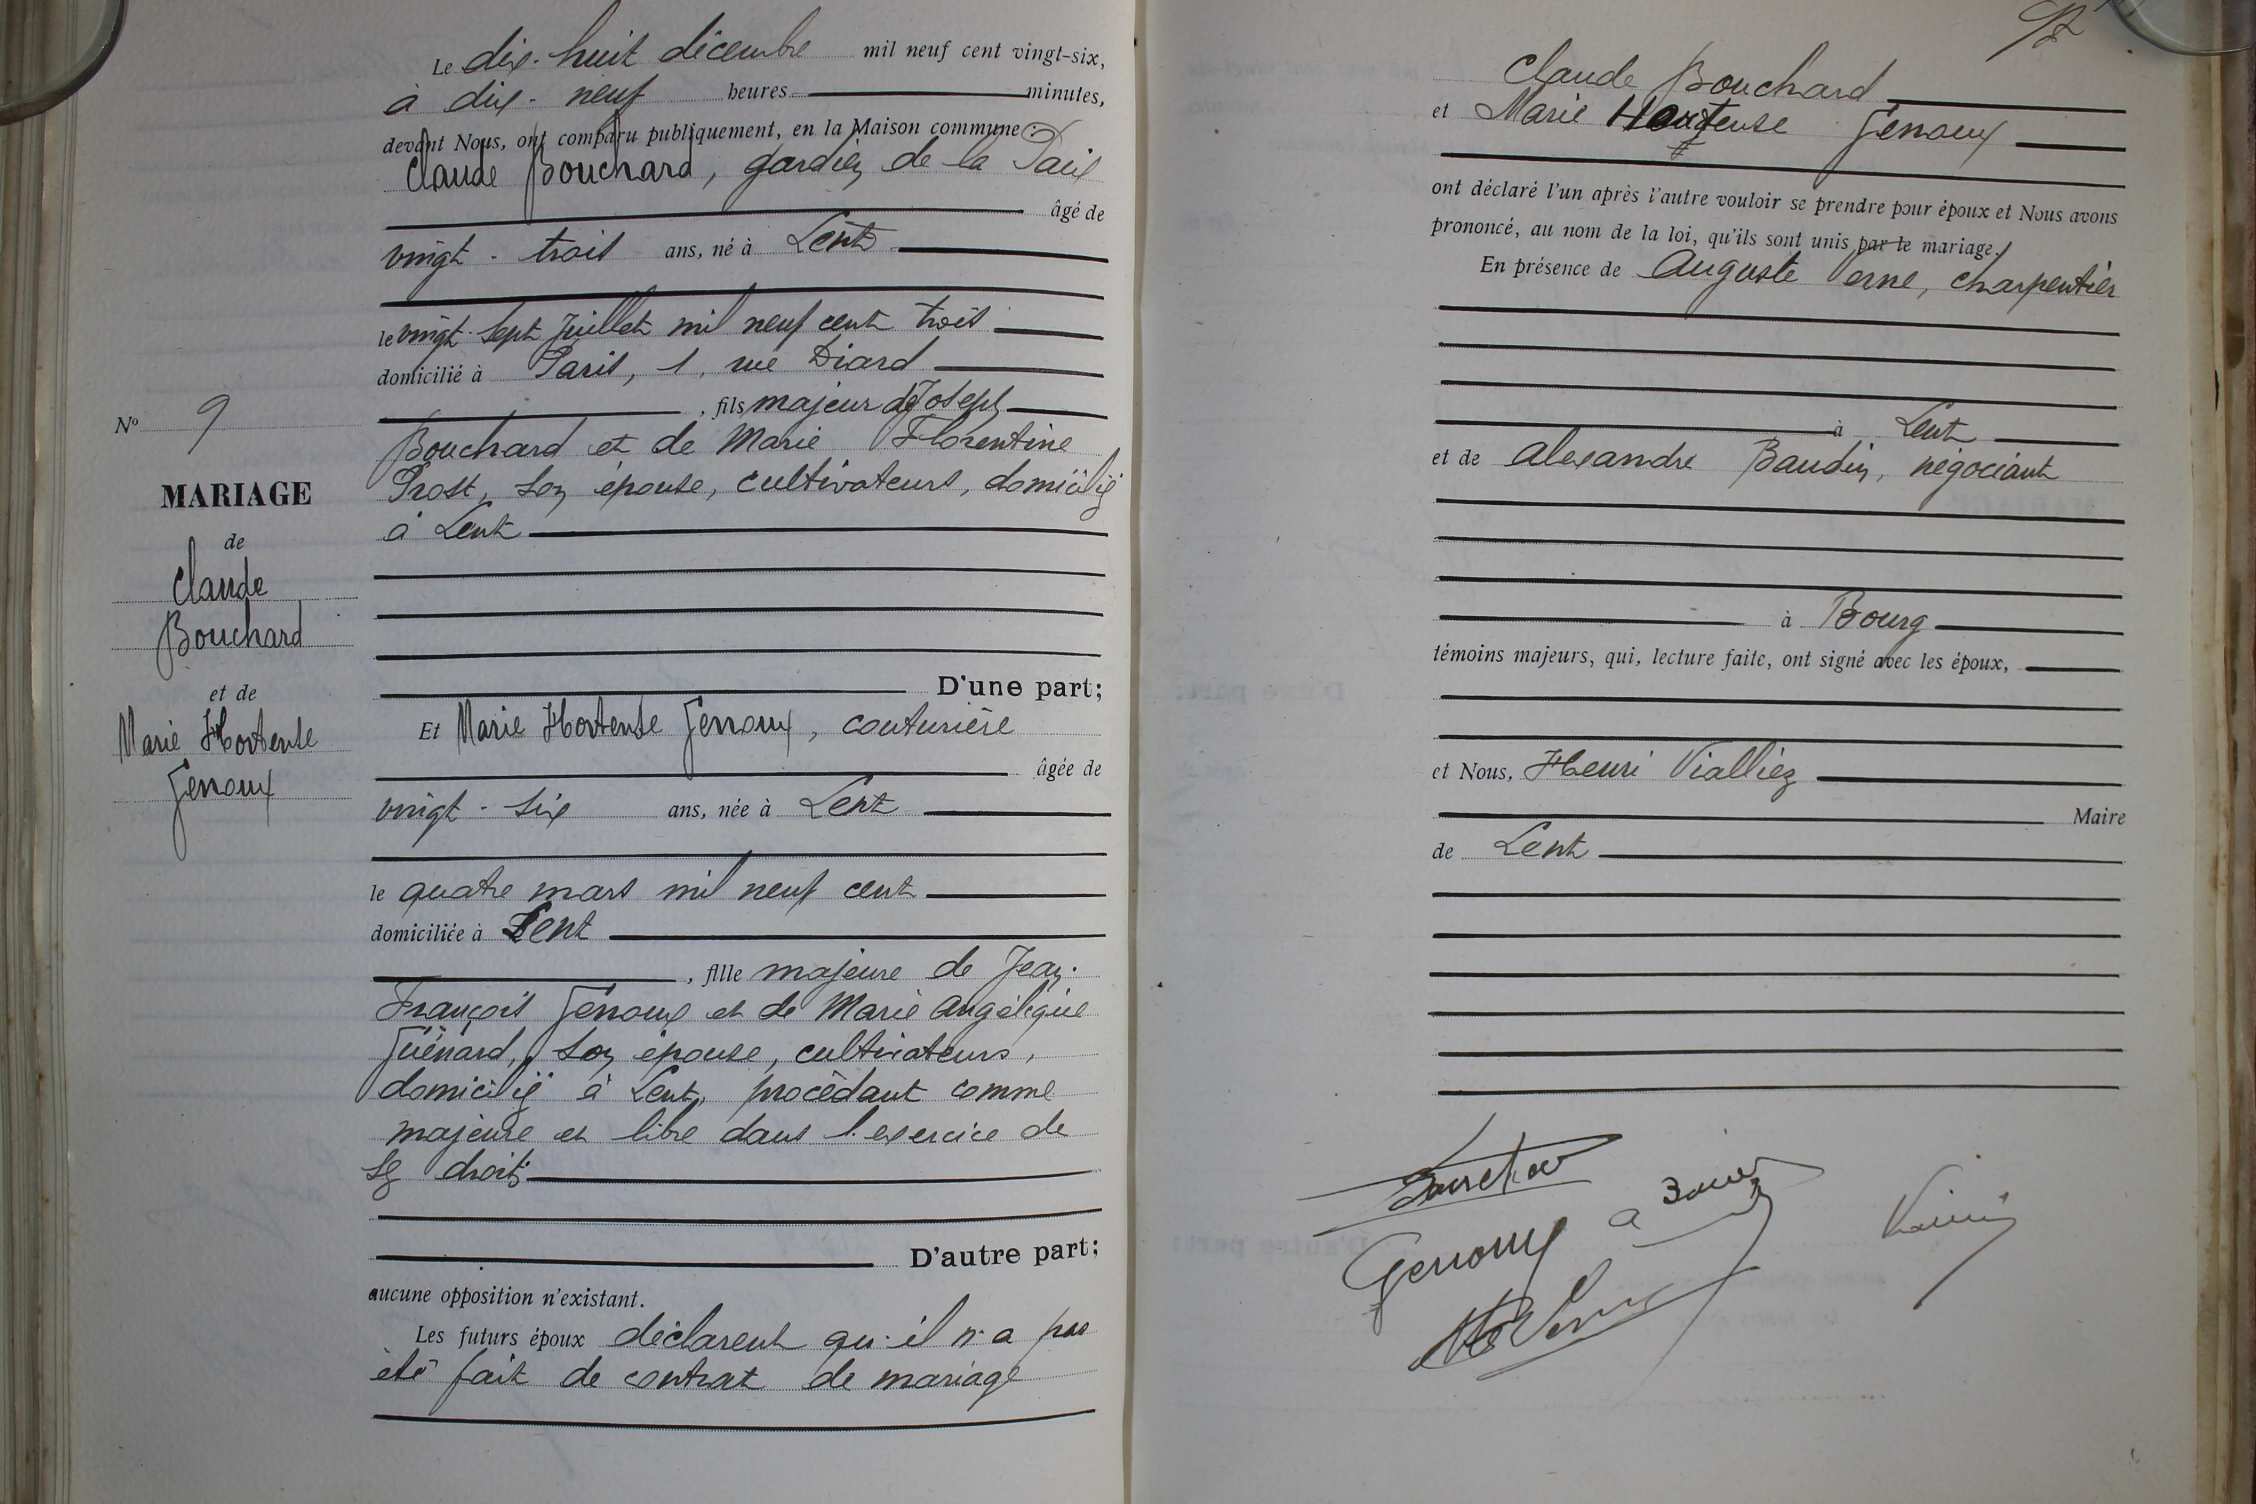 Le dix-huit décembre mil neuf cent vingt-six,
à dix-neuf heures minutes,
devant Nous, ont comparu publiquement, en la Maison commune :
Claude Bouchard, gardien de la Paix
âgé de
vingt-trois ans, né à Lent
le vingt-sept Juillet mil neuf cent trois
domicilié à Paris, 1, rue Diard
, fils majeur de Joseph
Bouchard et de Marie Florentine
Prost, son épouse, cultivateurs, domiciliés
à Lent
D'une part;
Et Marie Hortense Genoux, couturière
âgée de
vingt-six ans, née à Lent
le quatre mars mil neuf cent
domiciliée à Lent
, fille majeure de Jean-
François Genoux et de Marie Angélique
Guénard, son épouse, cultivateurs,
domiciliés à Lent, procédant comme
majeure et libre dans l'exercice de
ses droits
D'autre part;
aucune opposition n'existant.
Les futurs époux déclarent qu'il n'a pas
été fait de contrat de mariage
No 9
MARIAGE
de
Claude
Bouchard
et de
Marie Hortense
Genoux
Claude Bouchard
et Marie Hortense Genoux
ont déclaré l'un après l'autre vouloir se prendre pour époux et Nous avons
prononcé, au nom de la loi, qu'ils sont unis par le mariage.
En présence de Auguste Verne, charpentier
à Lent
et de Alexandre Baudin, négociant
à Bourg
témoins majeurs, qui, lecture faite, ont signé avec les époux,
et Nous, Henri Viallier
Maire
de Lent
Genoux